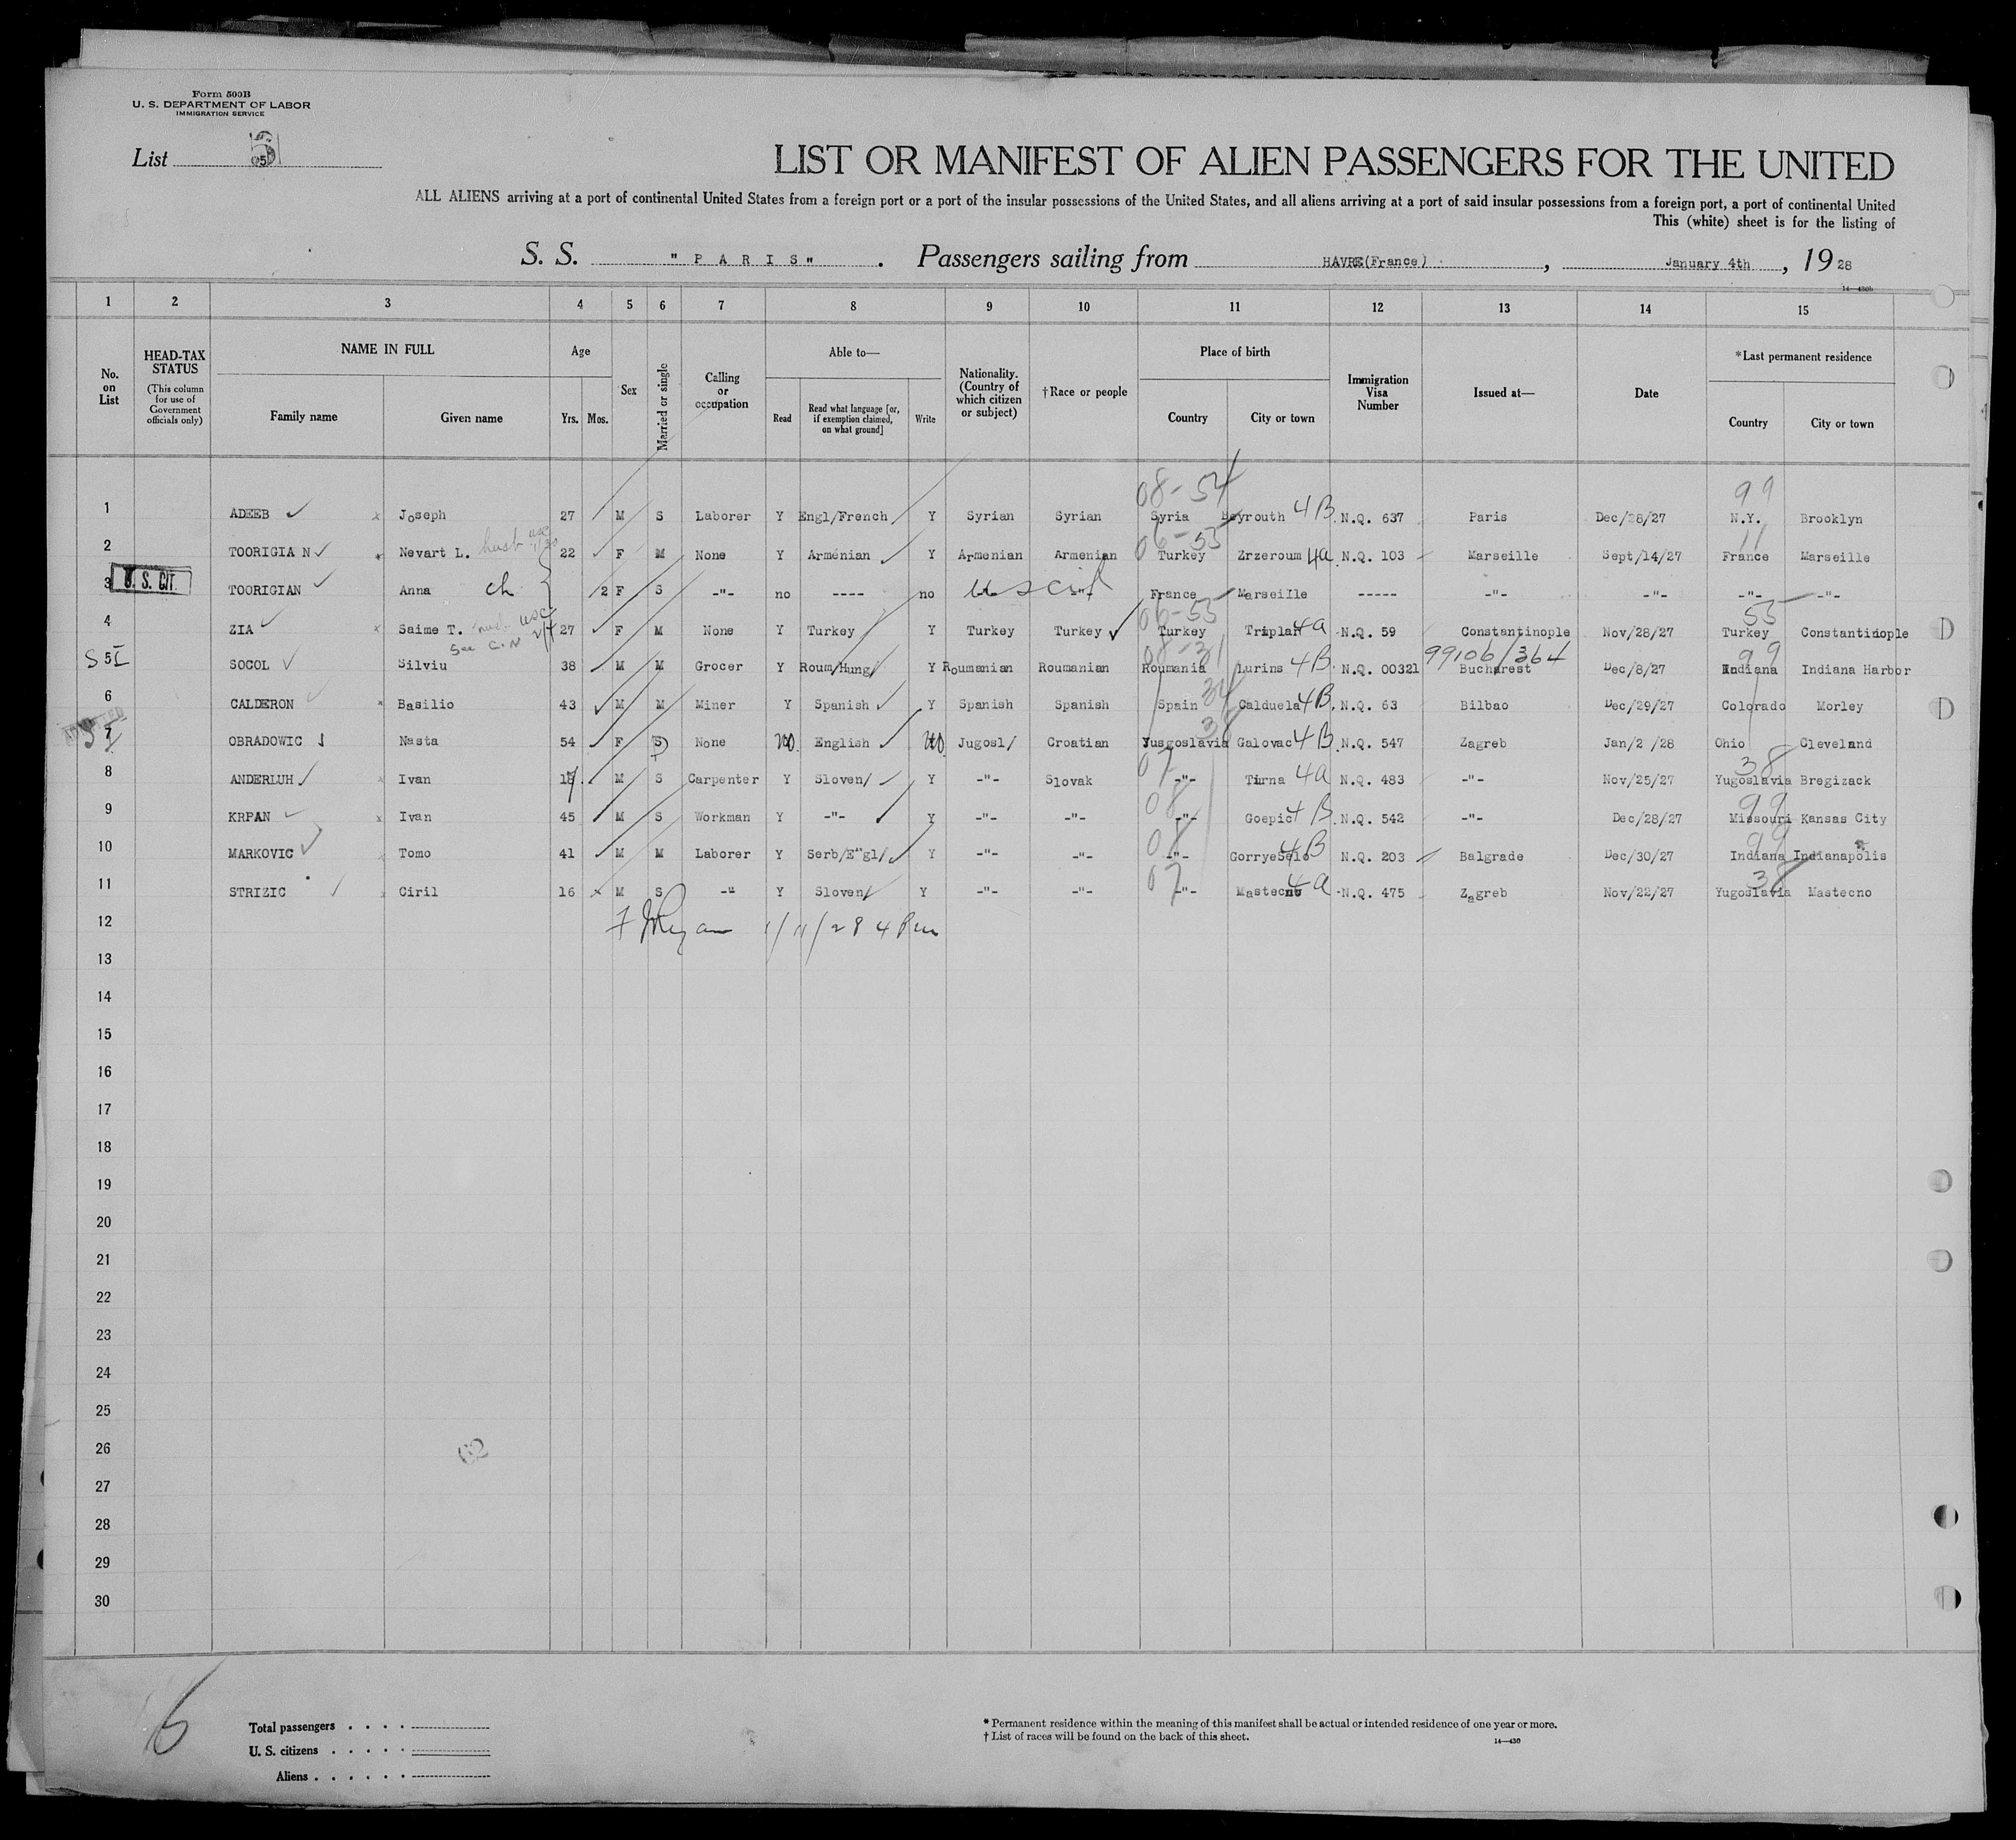 Form 500B
U. S. DEPARTMENT OF LABOR
IMMIGRATION SERVICE
List 5
LIST OR MANIFEST OF ALIEN PASSENGERS FOR THE UNITED
ALL ALIENS arriving at a port of continental United States from a foreign port or a port of the insular possessions of the United States, and all aliens arriving at a port of said insular possessions from a foreign port, a port of continental United
This (white) sheet is for the listing of
S. S. "PARIS" . Passengers sailing from HAVRE(France) , January 4th , 19 28
14—430b
1 2 3 4 5 6 7 8 9 10 11 12 13 14 15
No. on List
HEAD-TAX STATUS (This column for use of Government officials only)
NAME IN FULL Family name Given name
Age Yrs. Mos.
Sex
Married or single
Calling or occupation
Able to— Read Read what language [or, if exemption claimed, on what ground] Write
Nationality. (Country of which citizen or subject)
†Race or people
Place of birth Country City or town
Immigration Visa Number
Issued at—
Date
*Last permanent residence Country City or town
08-54 99
1 ADEEB Joseph 27 M S Laborer Y Engl/French Y Syrian Syrian Syria Beyrouth 4B N.Q. 637 Paris Dec/28/27 N.Y. Brooklyn
husb usc 06-53 11
2 TOORIGIA N Nevart L. 22 F M None Y Arménian Y Armenian Armenian Turkey Zrzeroum 4a N.Q. 103 Marseille Sept/14/27 France Marseille
U. S. CIT.
3 TOORIGIAN Anna ch 2 F S -"- no ---- no us cit -"- France Marseille ----- -"- -"- -"- -"-
usc 06-55 55
4 ZIA Saime T. 27 F M None Y Turkey Y Turkey Turkey Turkey Triplan 4a N.Q. 59 Constantinople Nov/28/27 Turkey Constantinople
See C.N 08-31 99106/364 99
S I 5 SOCOL Silviu 38 M M Grocer Y Roum/Hung/ Y Roumanian Roumanian Roumania Lurins 4B N.Q. 00321 Bucharest Dec/8/27 Indiana Indiana Harbor
34
6 CALDERON Basilio 43 M M Miner Y Spanish Y Spanish Spanish Spain Calduela 4B N.Q. 63 Bilbao Dec/29/27 Colorado Morley
38
S I 7 OBRADOWIC Nasta 54 F S None no English no Jugosl/ Croatian Yusgoslavia Galovac 4B N.Q. 547 Zagreb Jan/2 /28 Ohio Cleveland
07 38
8 ANDERLUH Ivan 17 M S Carpenter Y Sloven/ Y -"- Slovak -"- Tirna 4a N.Q. 483 -"- Nov/25/27 Yugoslavia Bregizack
08 99
9 KRPAN Ivan 45 M S Workman Y -"- Y -"- -"- -"- Goepic 4B N.Q. 542 -"- Dec/28/27 Missouri Kansas City
08 99
10 MARKOVIC Tomo 41 M M Laborer Y Serb/E"gl/ Y -"- -"- -"- GorryeSelo 4B N.Q. 203 Balgrade Dec/30/27 Indiana Indianapolis
07 38
11 STRIZIC Ciril 16 M S -" Y Sloven/ Y -"- -"- -"- Mastecno 4a N.Q. 475 Zagreb Nov/22/27 Yugoslavia Mastecno
12 1/11/28 4 Pm
13
14
15
16
17
18
19
20
21
22
23
24
25
26
27
28
29
30
6
Total passengers . . . .
U. S. citizens . . . . .
Aliens . . . . . .
* Permanent residence within the meaning of this manifest shall be actual or intended residence of one year or more.
† List of races will be found on the back of this sheet.
14—430